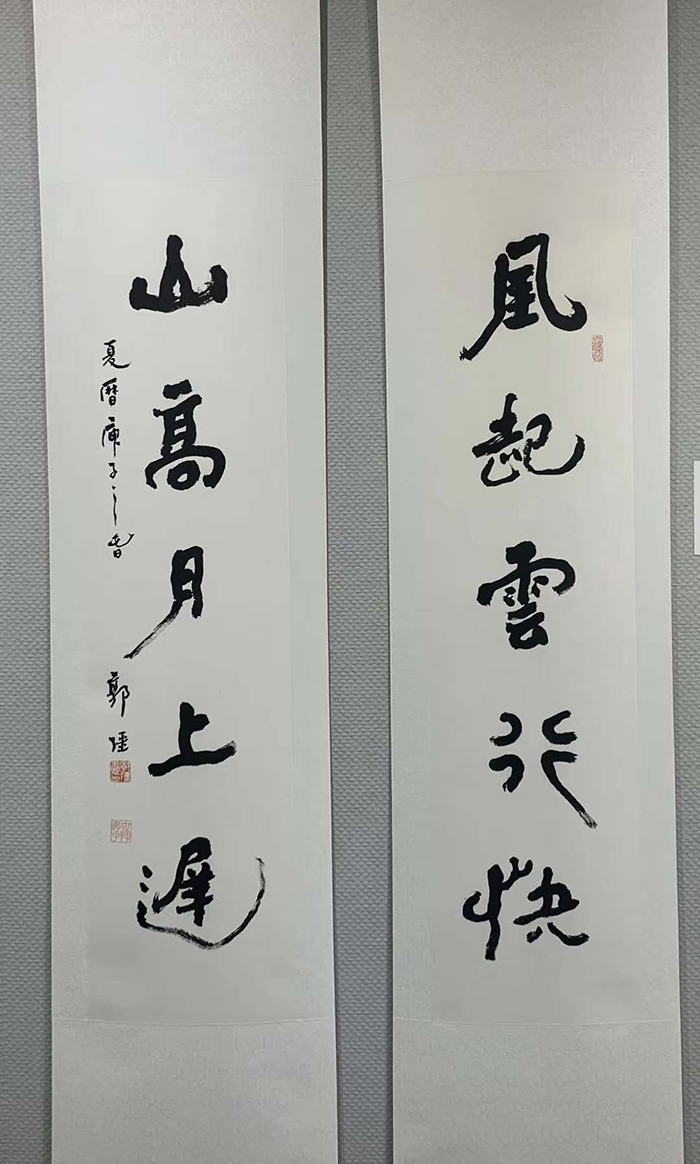 風起雲行快
山高月上遲
夏曆庚子之春
郭